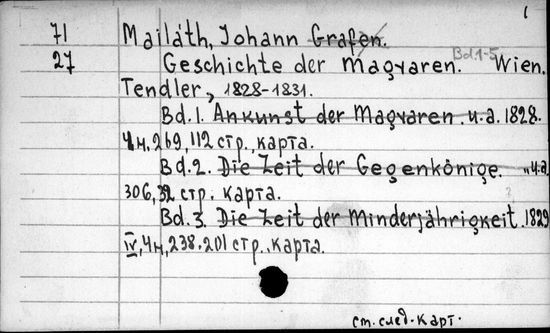 1
71 Mailáth, Johann Grafen.
27 Geschichte der Magyaren. Bd. 1-5 Wien.
Tendler, 1828-1831.
Bd. 1. Ankunst der Magyaren. u.a. 1828.
4н, 269, 112 стр., карта.
Bd. 2. Die Zeit der Gegenkönige. "u.a
306, 32 стр. карта.
Bd. 3. Die Zeit der Minderjährigkeit. 1829
IV, 4н, 238. 201 стр., карта.
см. след. карт.